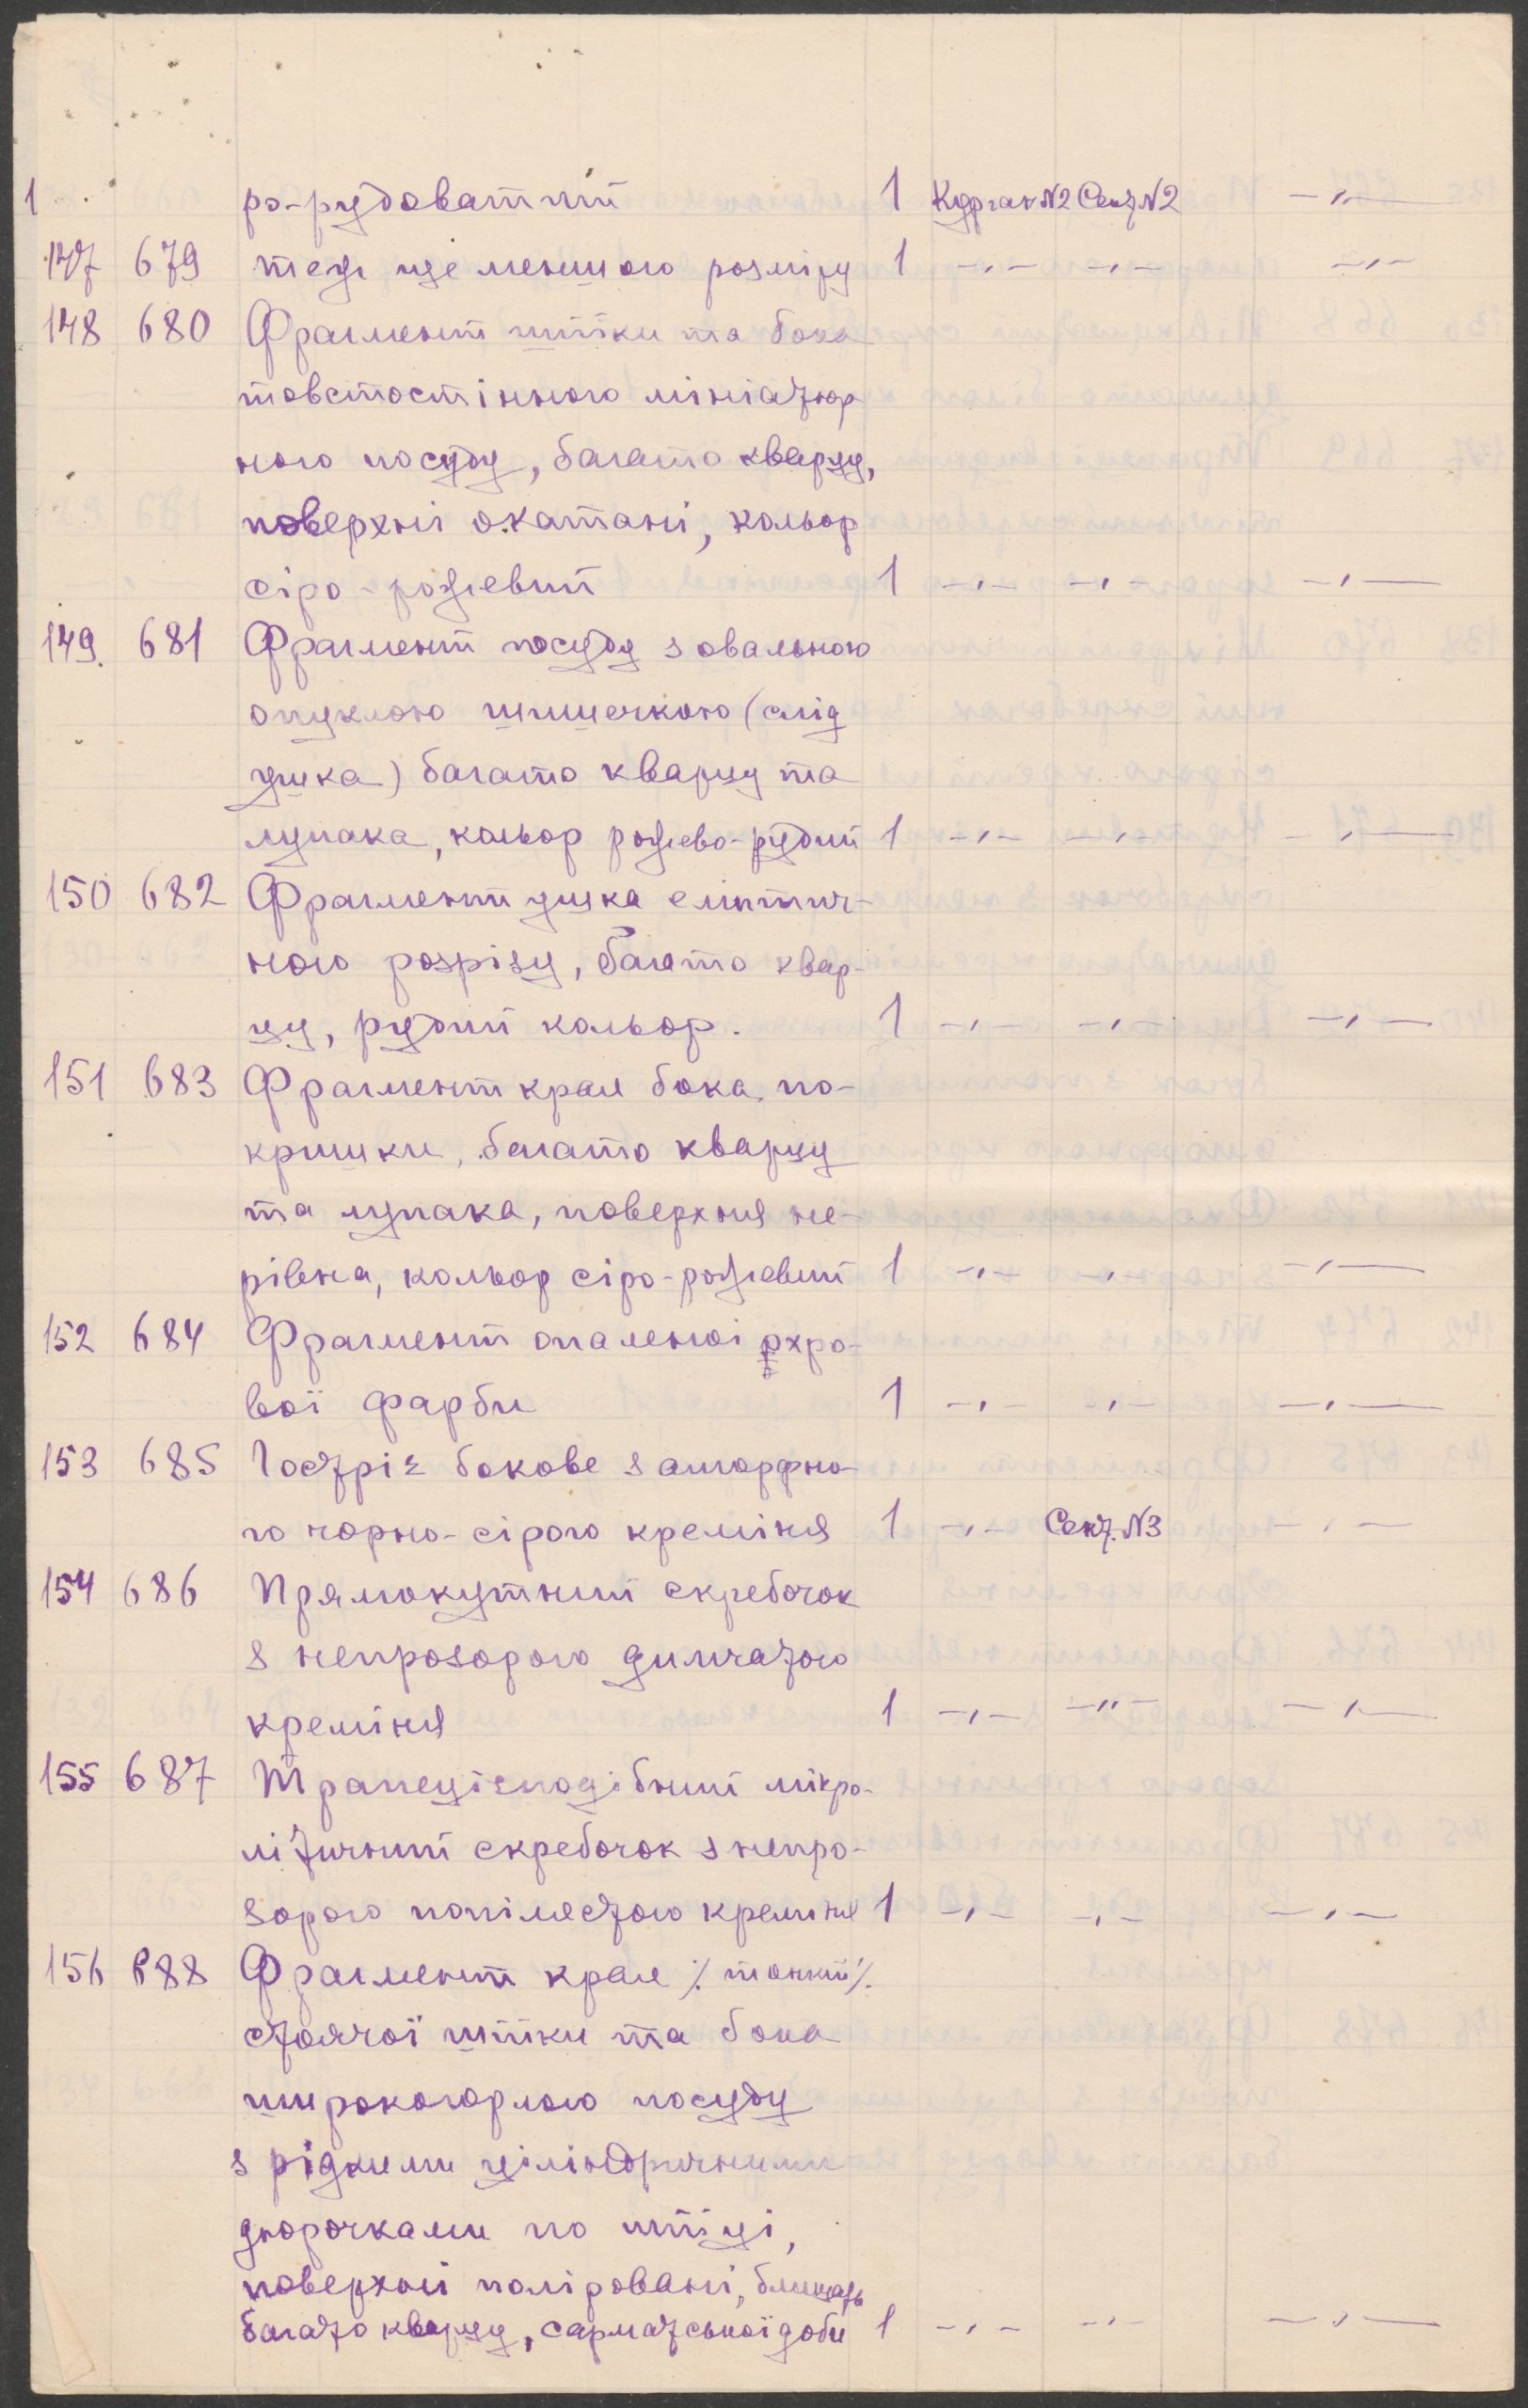 1 ро-рудоватий 1 Курган N2 Сект N2 -„-
147 679 теж ще меншого розміру 1 -„- -„- -„-
148 680 Фрагмент шийки та бока
товстостінного мініатюр
ного посуду, багато кварцу,
поверхні окатані, кольор
сіро-рожевий 1 -„- -„- -„-
149. 681 Фрагмент посуду з овальною
опуклою шишечкою (слід
ушка) багато кварцу та
лупака, кольор рожево-рудий 1 -„- -„- -„-
150 682 Фрагмент ушка еліптич-
ного розрізу, багато квар-
цу, рудий кольор. 1 -„- -„- -„-
151 683 Фрагмент края бока по-
кришки, багато кварцу
та лупака, поверхня не-
рівна, кольор сіро-рожевий 1 -„- -„- -„-
152 684 Фрагмент опаленої охро-
вої фарби 1 -„- -„- -„-
153 685 Гостріє бокове з аморфно-
го чорно-сірого креміня 1 -„- Сект. N3 -„-
154 686 Прямокутний скребочок
з непрозорого димчатого
креміня 1 -„- -„- -„-
155 687 Трапецієподібний мікро-
літичний скребочок з непро-
зорого попілястого креміня 1 -„- -„- -„-
156 688 Фрагмент края /. тонкий /.
стоячої шийки та бока
широкогорлого посуду
з рідкими циліндричними
дюрочками по шийці,
поверхні поліровані, блищать
багато кварцу, сарматської доби 1 -„- -„- -„-